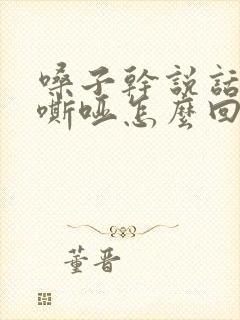 嗓子幹說話
嘶啞怎麼回
董晋